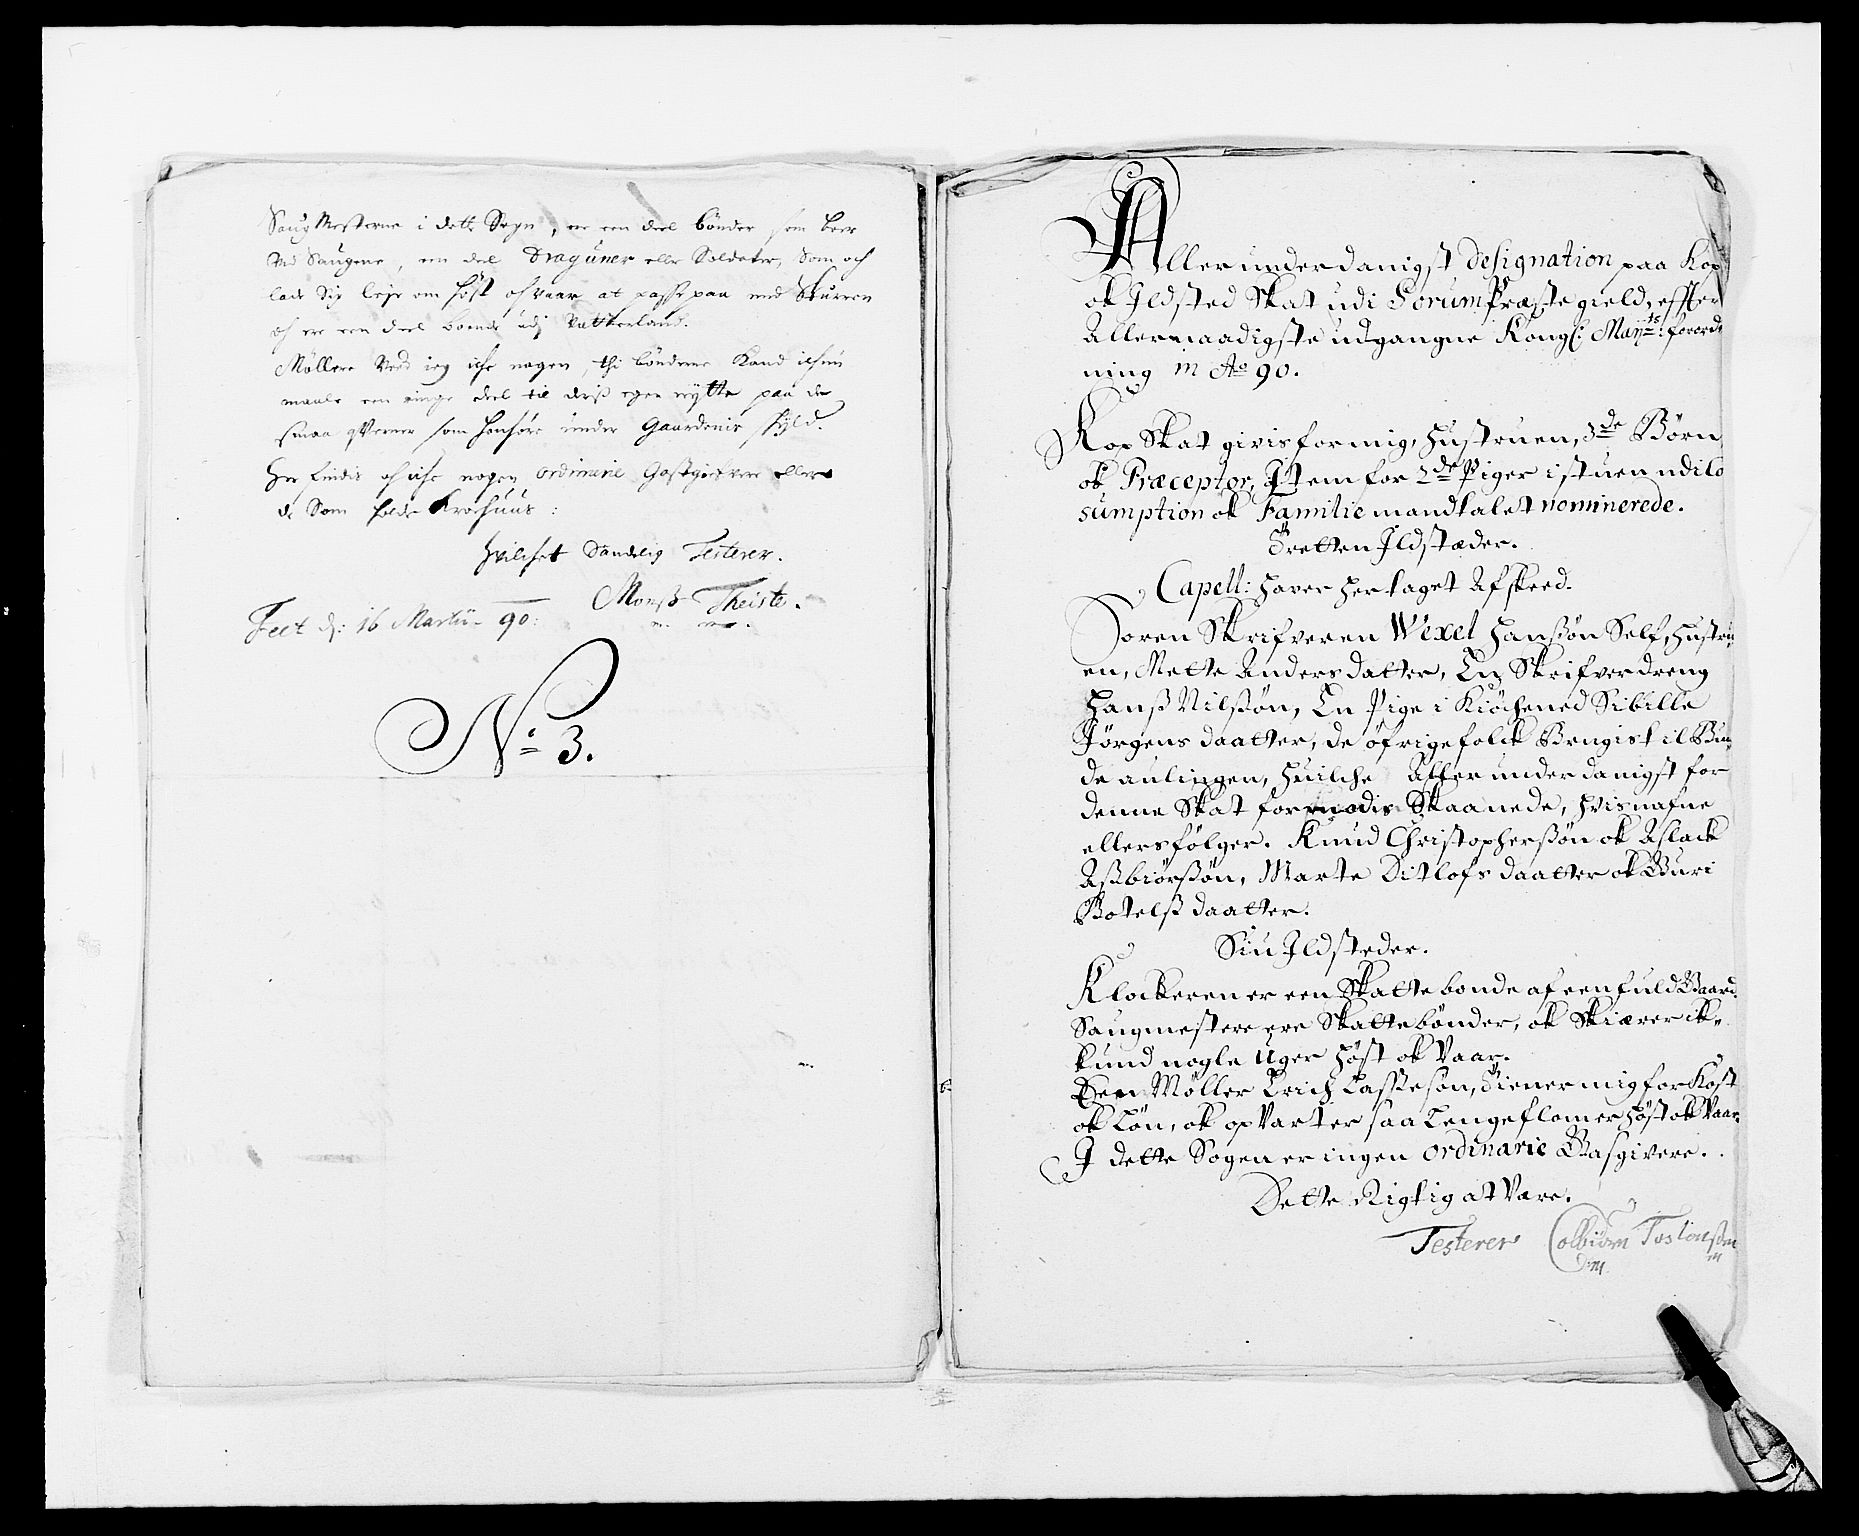 Saug Mesterne i dette Sogn, er een deel bönder som boer
ved Saugene, een deel Dragüner eller Soldater, Som och
lade Sig leje om Höst och vaar at passe paa med Skurren
och ere een deel boende udj Vatterland.
Möllere Veed ieg iche nogen, thi bönderne Kand ichun
maale een ringe deel til deriß egen nÿtte paa de
smaa qverner som henhöre ünder Gaardenis skÿld.
Her findis och iche nogen ordinarie Gastgiefvere eller
de Som holde Krochuus:
Hvilchet Sandelig Testerer.
Monß Theiste.
Fect d: 16 Martii 90:
No 3.
Allerunderdanigst Designation paa Kop
ok Ildsted Skat udi Sorum Præstegield, effter
Allernaadigste udgangne Kongl: Mayts: forord
ning in Ao 90.
Kop Skat givis for mig, Hustruen, 3de Börn
ok Præceptor, Item for 2de Piger i stuen udi Co
sumption ok Familie mandtalet nominerede.
Tretten Ildstæder.
Capell: haver her taget Afskeed.
Soren Skrifveren Wexel Hanßön Self, Hustru
en, Mette Andersdatter, En Skrifverdreng
Hanß Nilßön, En Pige i Kiöchened Sibille
Jörgensdaatter, de öfrige folck Brugis til Bun
de aulingen, Huilche Allerunderdanigst for
denne Skat formodis Skaanede, Hvis nafne
ellers fölger. Knud Christopherßön ok Aslack
Aßbiörßön, Marte Ditlofs daatter ok Guri
Botelß daatter.
Siu Ildsteder.
Klockeren er een Skattebonde af een fuld Gaard.
Saugmestere ere Skattebönder, ok Skiærer ik-
kund nogle Uger Höst ok Vaar.
Een Möller Erich Lassesön, tiener mig for Kost
ok Lön, ok opvarter saa Lenge flom er Höst ok Vaar.
I dette Sogen er ingen ordinarie Gasgivere.
Dette Rigtig at Være.
Testerer Colbiörn